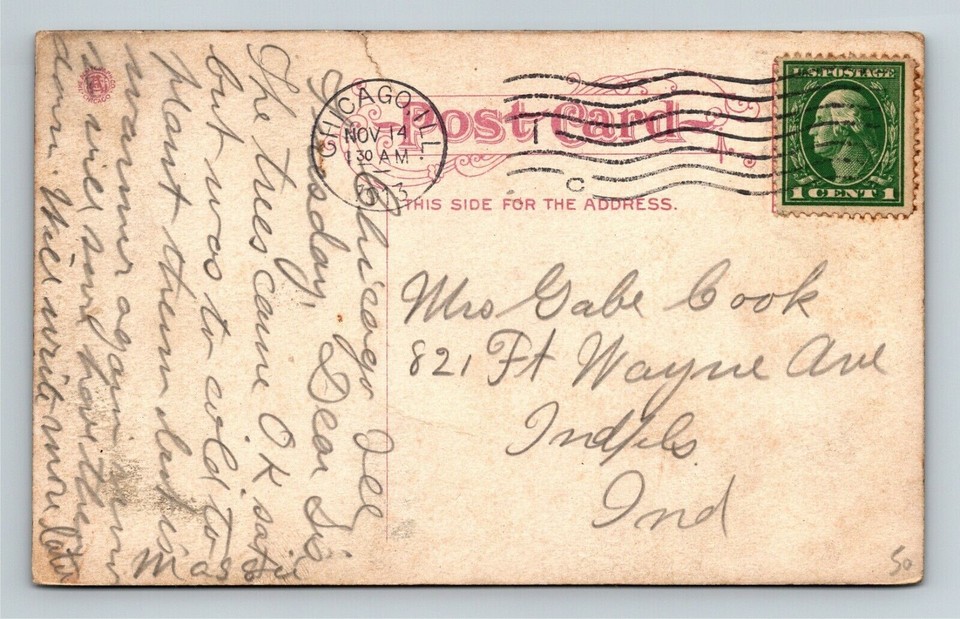 Post Card
CHICAGO, ILL.
NOV 14
1 30 AM
1913
1
C
U.S. POSTAGE
1 CENT 1
THIS SIDE FOR THE ADDRESS.
Mrs Gabe Cook
821 Ft Wayne Ave
Indpls
Ind
Chicago Ill
Tuesday, Dear Sis
The trees came OK sat
but was to cold to
plant them but is
warmer again now
will sure have them
done. Will write more later
Massie